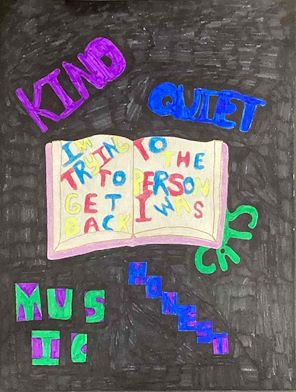 KIND
QUIET
I'M TRYING TO GET BACK
TO THE PERSON I WAS
CATS
MUSIC
HONEST